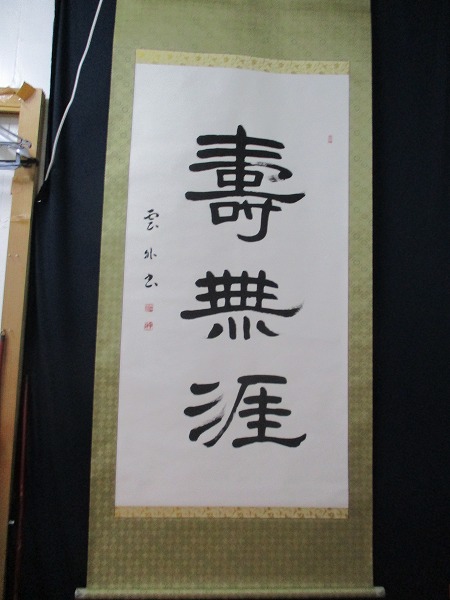 壽無涯
雲外書